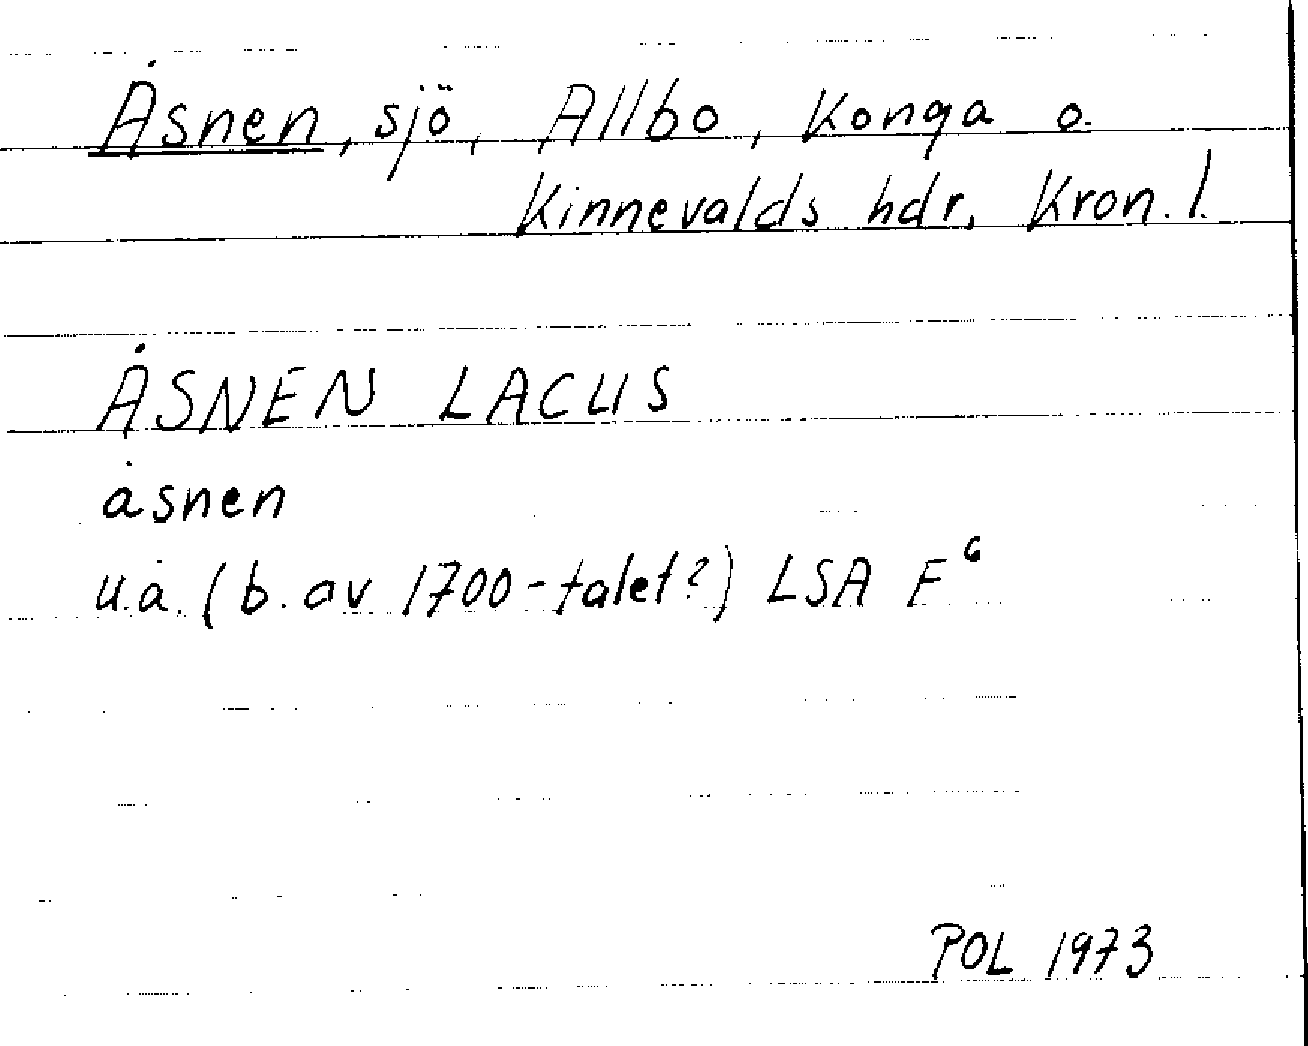 Åsnen, sjö, Allbo, Konga o.
Kinnevalds hdr, Kron. l.
ÅSNEN LACUS
åsnen
u.å. (b. av 1700-talet?) LSA F⁶
POL 1973